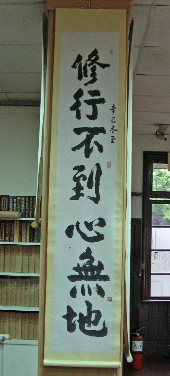 修行不到心無地
辛巳冬至